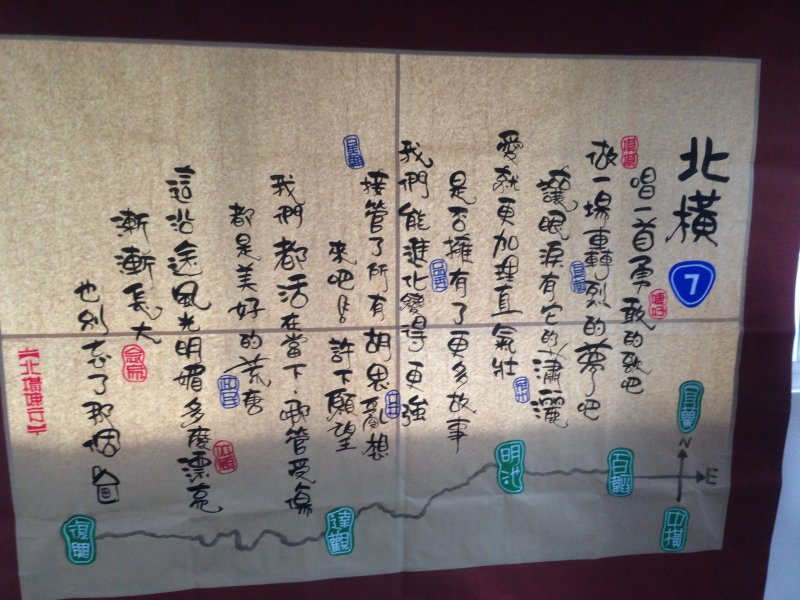 北橫
7
唱一首勇敢的歌吧
做一場轟烈的夢吧
讓眼淚有它的瀟灑
愛就更加理直氣壯
是否擁有了更多故事
我們能進化變得更強
接管了所有胡思亂想
來吧！許下願望
我們都活在當下．哪管受傷
都是美好的荒唐
這沿途風光明媚多麼漂亮
漸漸長大
也別忘了那個
N
E
百韜
明池
達觀
復興
中橫